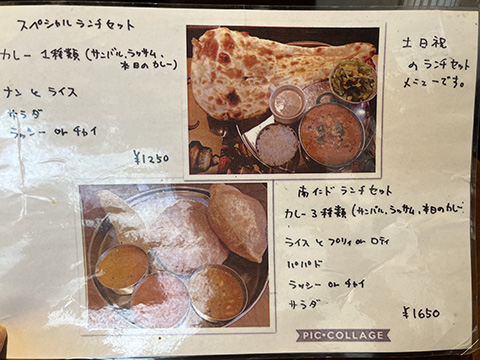 スペシャルランチセット
カレー 1種類 (サンバル、ラッサム、
本日のカレー)
ナン と ライス
サラダ
ラッシー or チャイ
¥1250
土日祝
のランチセット
メニューです。
南インド ランチセット
カレー3種類 (サンバル、ラッサム、本日のカレー
ライス と プリィ or ロティ
パパド
ラッシー or チャイ
サラダ
¥1650
PIC•COLLAGE